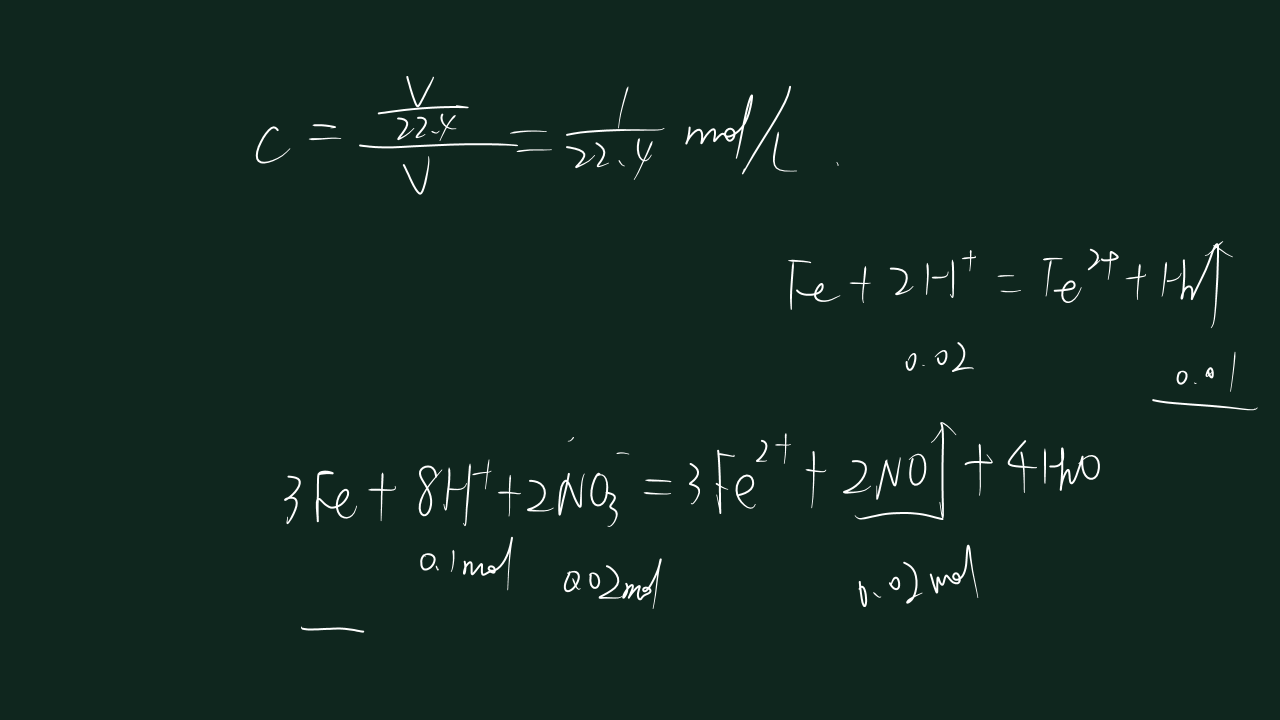 c = (V/22.4)/V = 1/22.4 mol/L.
Fe + 2H⁺ = Fe²⁺ + H₂↑
0.02 0.01
3Fe + 8H⁺ + 2NO₃⁻ = 3Fe²⁺ + 2NO↑ + 4H₂O
0.1mol 0.02mol 0.02mol